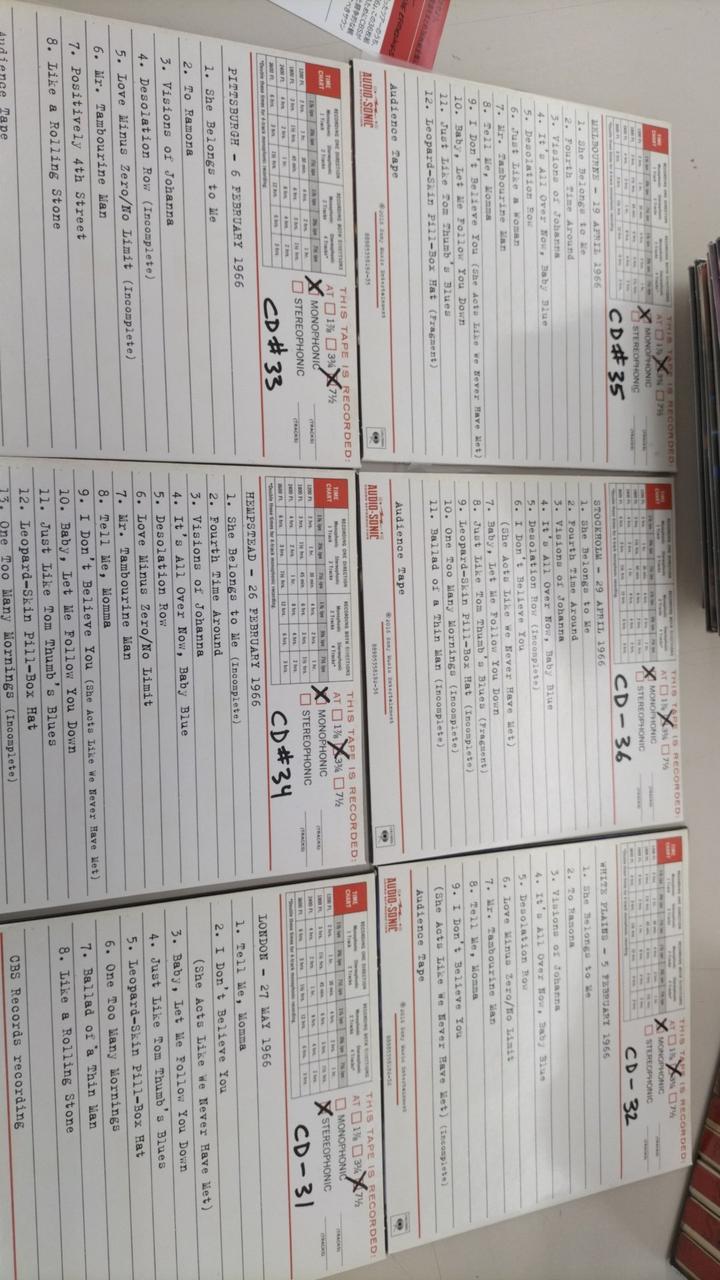 TIME CHART
RECORDING ONE DIRECTION
RECORDING BOTH DIRECTIONS
THIS TAPE IS RECORDED:
AT 1⅞ 3¾ 7½
MONOPHONIC
STEREOPHONIC
(TRACKS)
(TRACKS)
CD#33
PITTSBURGH - 6 FEBRUARY 1966
1. She Belongs to Me
2. To Ramona
3. Visions of Johanna
4. Desolation Row (Incomplete)
5. Love Minus Zero/No Limit (Incomplete)
6. Mr. Tambourine Man
7. Positively 4th Street
8. Like a Rolling Stone
Audience Tape
TIME CHART
THIS TAPE IS RECORDED:
AT 1⅞ 3¾ 7½
MONOPHONIC
STEREOPHONIC
CD#35
MELBOURNE - 19 APRIL 1966
1. She Belongs to Me
2. Fourth Time Around
3. Visions of Johanna
4. It's All Over Now, Baby Blue
5. Desolation Row
6. Just Like a Woman
7. Mr. Tambourine Man
8. Tell Me, Momma
9. I Don't Believe You (She Acts Like We Never Have Met)
10. Baby, Let Me Follow You Down
11. Just Like Tom Thumb's Blues
12. Leopard-Skin Pill-Box Hat (Fragment)
Audience Tape
AUDIO-SONIC
TIME CHART
RECORDING ONE DIRECTION
RECORDING BOTH DIRECTIONS
THIS TAPE IS RECORDED:
AT 1⅞ 3¾ 7½
MONOPHONIC
STEREOPHONIC
(TRACKS)
(TRACKS)
CD#34
HEMPSTEAD - 26 FEBRUARY 1966
1. She Belongs to Me (Incomplete)
2. Fourth Time Around
3. Visions of Johanna
4. It's All Over Now, Baby Blue
5. Desolation Row
6. Love Minus Zero/No Limit
7. Mr. Tambourine Man
8. Tell Me, Momma
9. I Don't Believe You (She Acts Like We Never Have Met)
10. Baby, Let Me Follow You Down
11. Just Like Tom Thumb's Blues
12. Leopard-Skin Pill-Box Hat
13. One Too Many Mornings (Incomplete)
TIME CHART
THIS TAPE IS RECORDED:
AT 1⅞ 3¾ 7½
MONOPHONIC
STEREOPHONIC
CD-36
STOCKHOLM - 29 APRIL 1966
1. She Belongs to Me
2. Fourth Time Around
3. Visions of Johanna
4. It's All Over Now, Baby Blue
5. Desolation Row (Incomplete)
6. I Don't Believe You
(She Acts Like We Never Have Met)
7. Baby Let Me Follow You Down
8. Just Like Tom Thumb's Blues (Fragment)
9. Leopard-Skin Pill-Box Hat (Incomplete)
10. One Too Many Mornings (Incomplete)
11. Ballad of a Thin Man (Incomplete)
Audience Tape
AUDIO-SONIC
TIME CHART
RECORDING ONE DIRECTION
RECORDING BOTH DIRECTIONS
THIS TAPE IS RECORDED:
AT 1⅞ 3¾ 7½
MONOPHONIC
STEREOPHONIC
(TRACKS)
(TRACKS)
CD-31
LONDON - 27 MAY 1966
1. Tell Me, Momma
2. I Don't Believe You
(She Acts Like We Never Have Met)
3. Baby, Let Me Follow You Down
4. Just Like Tom Thumb's Blues
5. Leopard-Skin Pill-Box Hat
6. One Too Many Mornings
7. Ballad of a Thin Man
8. Like a Rolling Stone
CBS Records recording
TIME CHART
THIS TAPE IS RECORDED:
MONOPHONIC
STEREOPHONIC
CD-32
WHITE PLAINS - 5 FEBRUARY 1966
1. She Belongs to Me
2. To Ramona
3. Visions of Johanna
4. It's All Over Now, Baby Blue
5. Desolation Row
6. Love Minus Zero/No Limit
7. Mr. Tambourine Man
8. Tell Me, Momma
9. I Don't Believe You
(She Acts Like We Never Have Met) (Incomplete)
Audience Tape
AUDIO-SONIC